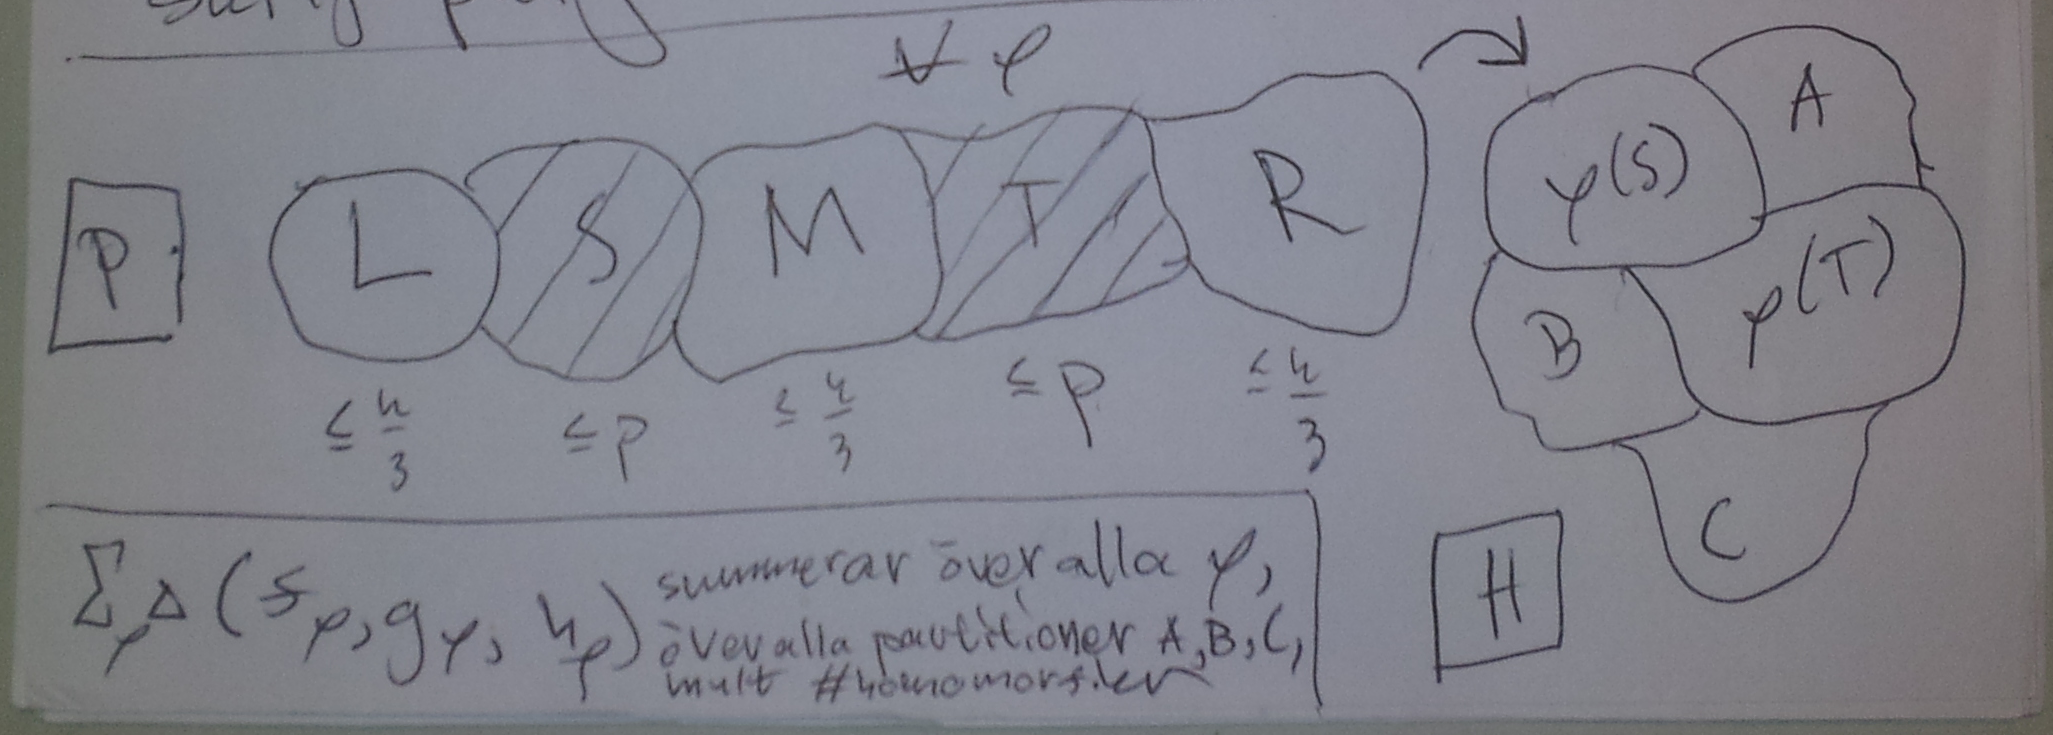 ∀ φ
P
L
S
M
T
R
≤ n/3
≤ p
≤ n/3
≤ p
≤ n/3
φ(S)
A
B
φ(T)
C
H
Σφ Δ(fφ, gφ, hφ)
summerar över alla φ,
över alla partitioner A,B,C,
mult #homomorfier